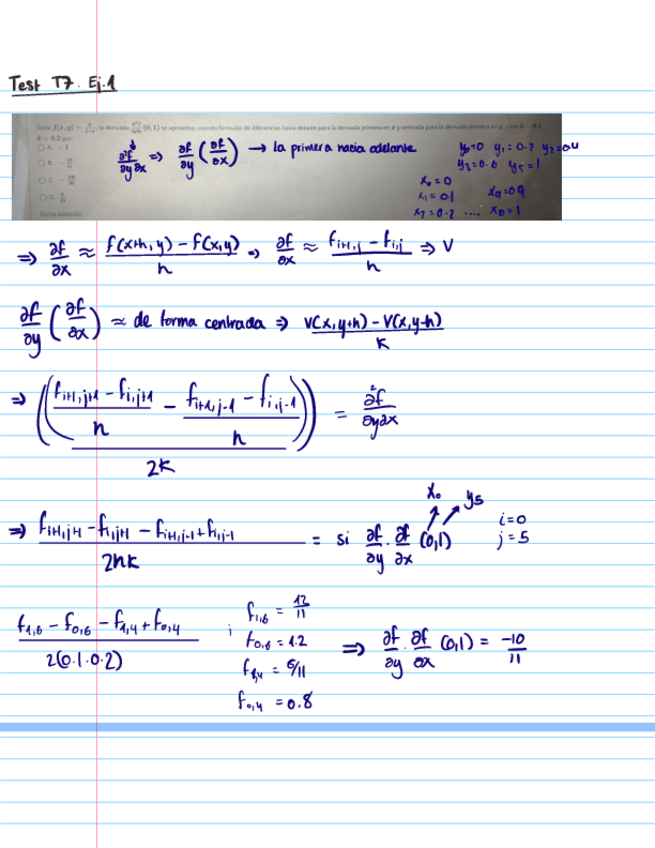 Test T7. Ej.1
Dado f(x,y) = , la derivada (0,1) se aproxima, usando formulas de diferencias hacia delante para la derivada primera en x y centrada para la derivada primera en y, y con h = 0.1,
k = 0.2 por:
A. -1
B.
C.
D.
∂²f/∂y∂x ⇒ ∂f/∂y (∂f/∂x) → la primera hacia adelante
y₀=0 y₁=0.2 y₂=0.4
y₃=0.6 y₅=1
x₀=0
x₁=0.1 x₉=0.9
x₂=0.2 .... x₁₀=1
⇒ ∂f/∂x ≈ f(x+h,y) - f(x,y) / h ⇒ ∂f/∂x ≈ f i+1,j - f i,j / h ⇒ V
∂f/∂y (∂f/∂x) ≈ de forma centrada ⇒ V(x,y+h) - V(x,y-h) / k
⇒ ((f i+1,j+1 - f i,j+1 / h - f i+1,j-1 - f i,j-1 / h)) / 2k = ∂²f/∂y∂x
x₀ y₅
⇒ f i+1,j+1 - f i,j+1 - f i+1,j-1 + f i,j-1 / 2hk = si ∂f/∂y . ∂f/∂x (0,1) i=0
j=5
f1,6 - f0,6 - f1,4 + f0,4 / 2(0.1.0.2) ; f1,6 = 12/11
f0,6 = 1.2
⇒ ∂f/∂y . ∂f/∂x (0,1) = -10/11
f1,4 = 8/11
f0,4 = 0.8